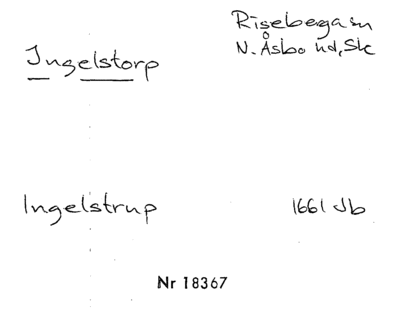 Riseberga sn
N. Åsbo hd, Sk
Ingelstorp
Ingelstrup 1661 Jb
Nr 18367